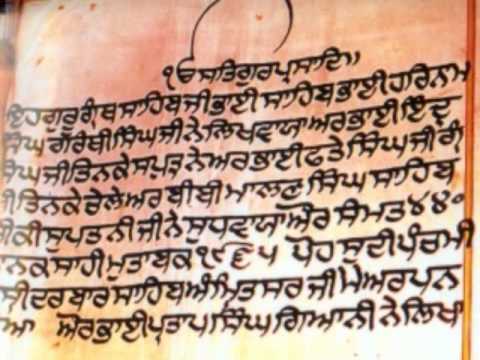 ੴ ਸਤਿਗੁਰਪ੍ਰਸਾਦਿ॥
ਇਹ ਗੁਰੂ ਗ੍ਰੰਥ ਸਾਹਿਬ ਜੀ ਭਾਈ ਸਾਹਿਬ ਭਾਈ ਹਰਿਨਾਮ
ਸਿੰਘ ਗਰੰਥੀ ਸਿੰਘ ਜੀ ਨੇ ਲਿਖਵਾਯਾ ਅਰ ਭਾਈ ਇੰਦ੍ਰ
ਸਿੰਘ ਜੀ ਤਿਨ ਕੇ ਸਪੁਤ੍ਰ ਨੇ ਅਰ ਭਾਈ ਫਤੇ ਸਿੰਘ ਜੀ
ਜੀ ਤਿਨ ਕੇ ਚੇਲੇ ਅਰ ਬੀਬੀ ਮਾਲਣ ਸਿੰਘ ਸਾਹਿਬ
ਜੀ ਕੀ ਸੁਪਤਨੀ ਜੀ ਨੇ ਸੁਧਵਾਯਾ ਔਰ ਸੰਮਤ ੪੪੦
ਨਾਨਕਸਾਹੀ ਮੁਤਾਬਕ ੧੯੬੫ ਪੋਹ ਸੁਦੀ ਪੰਚਮੀ
ਸ੍ਰੀ ਦਰਬਾਰ ਸਾਹਿਬ ਅੰਮ੍ਰਿਤਸਰ ਜੀ ਮੇ ਅਰਪਨ
ਔਰ ਭਾਈ ਪ੍ਰਤਾਪ ਸਿੰਘ ਗਿਆਨੀ ਨੇ ਲਿਖਾ